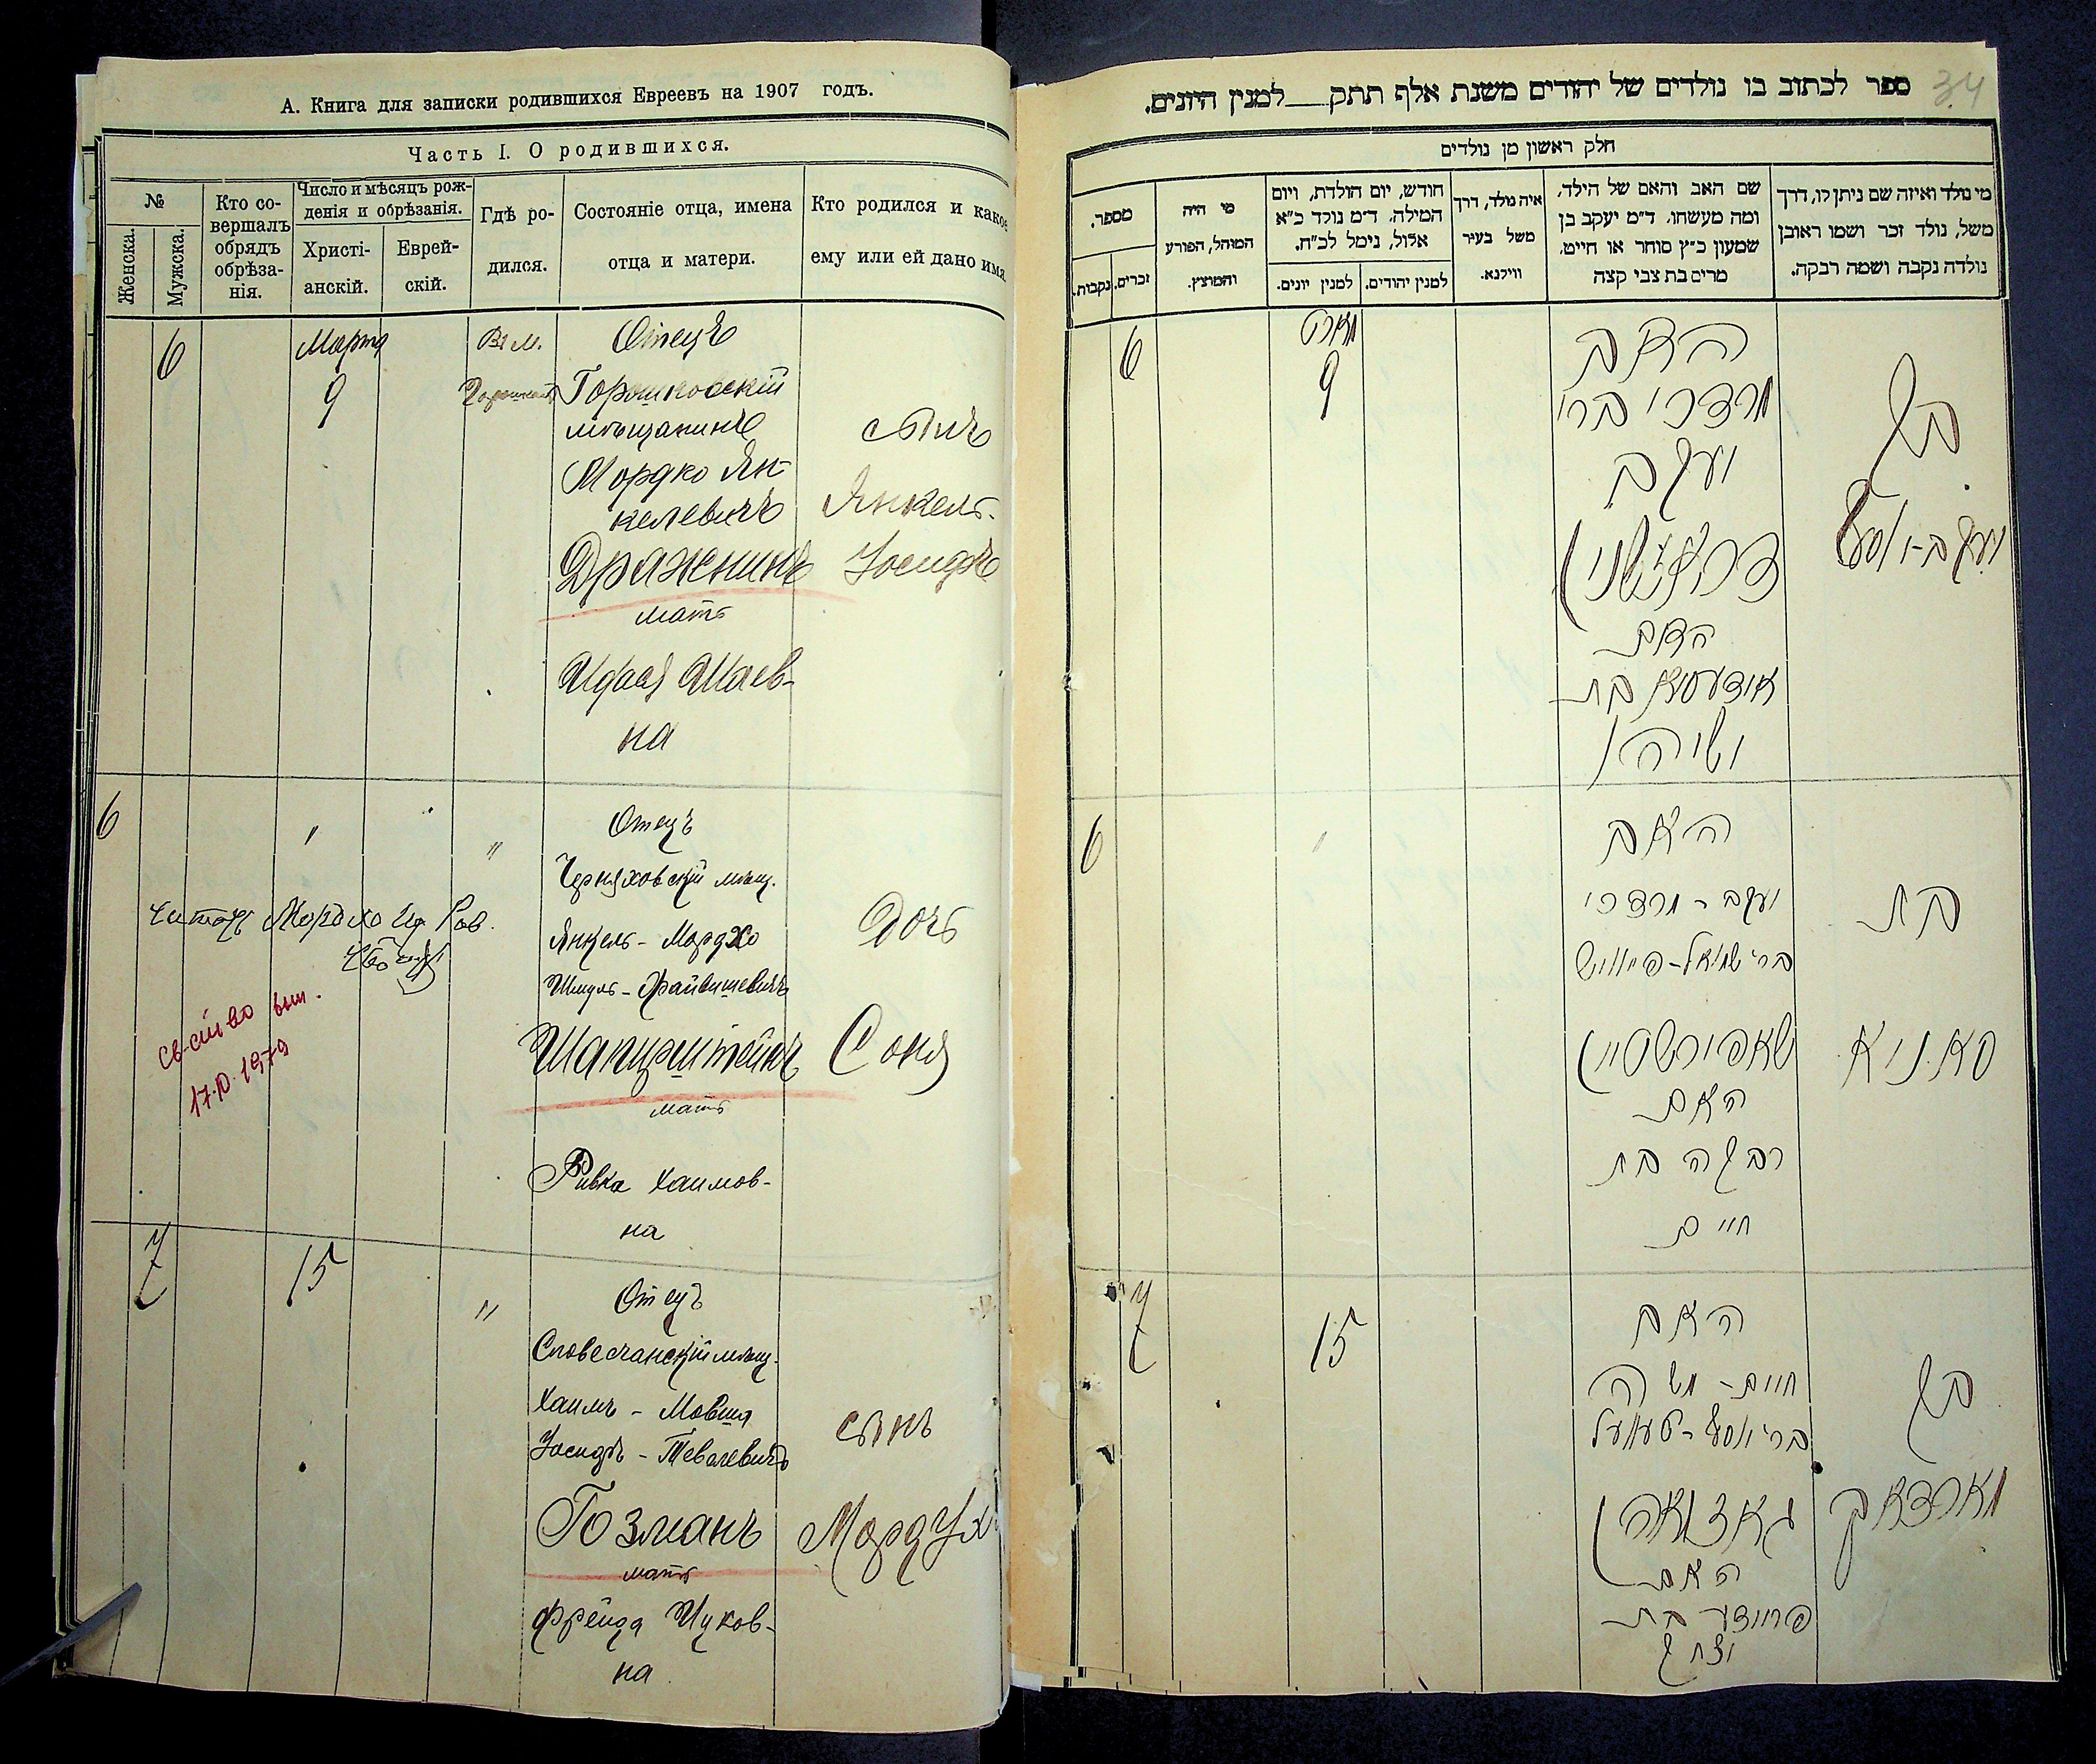 А. Книга для записки родившихся Евреевъ на 1907 годъ.
Часть I. О родившихся.
№
Женска.
Мужска.
Кто совершалъ обрядъ обрѣзанія.
Число и мѣсяцъ рожденія и обрѣзанія.
Христіанскій.
Еврейскій.
Гдѣ родился.
Состояніе отца, имена отца и матери.
Кто родился и какое ему или ей дано имя.
6
Марта
9
Въ м.
Отецъ
Горошковскій
мѣщанинъ
Мордко Ян-
келевичъ
Дражнинъ
мать
Шаев-
на
сынъ
Янкель-
Іосифъ
6
"
"
"
Отецъ
Черняховскій мѣщ.
Янкель - Мордхо
Шмуль - Файвишевичъ
Шапирштейнъ
мать
Ривка Хаимов-
на
Дочь
Соня
св-ство выш.
7
15
"
Отецъ
Словечанскій мѣщ.
Хаимъ - Мовша
Іосифъ - Тевелевичъ
Гозманъ
мать
Фрейда Ицков-
на
сынъ
Мордух
34
ספר לכתוב בו נולדים של יהודים משנת אלף תתק למנין היונים.
חלק ראשון מן נולדים
מספר.
נקבות.
זכרים.
מי היה המוהל, הפורע והמוצץ.
חודש, יום הולדת, ויום המילה. ד״מ נולד כ״א אלול, נימל לכ״ח.
למנין יונים.
למנין יהודים.
איה נולד, דרך משל בעיר ווילנא.
שם האב והאם של הילד, ומה מעשהו. ד״מ יעקב בן שמעון כ״ץ סוחר או חייט, מרים בת צבי קצה
מי נולד ואיזה שם ניתן לו, דרך משל, נולד זכר ושמו ראובן נולדה נקבה ושמה רבקה.
6
מארט
9
האב
מרדכי ברי
יעקב
דראזשנין
האם
בת
ישיהו
בן
יעקב-יוסף
6
"
האב
יעקב - מרדכי
בר׳ שמואל-פייוויש
שאפירשטיין
האם
רבקה בת
חיים
בת
סאניא
7
15
האב
חיים - משה
בר׳ יוסף-טעוועל
גאזמאן
האם
פריידע בת
יצחק
בן
מארדאך